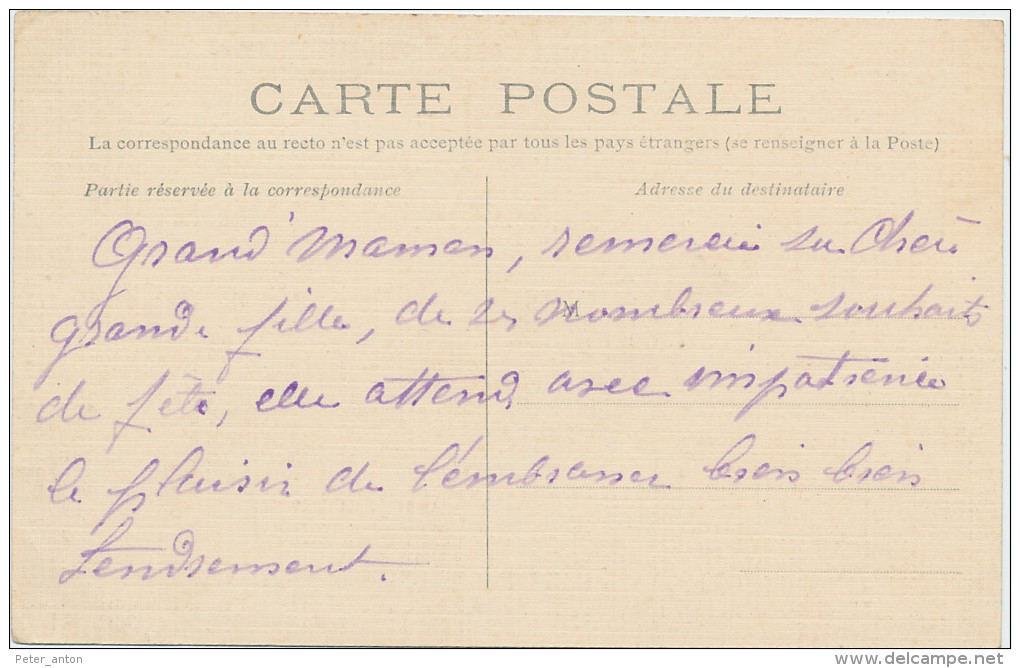 CARTE POSTALE
La correspondance au recto n'est pas acceptée par tous les pays étrangers (se renseigner à la Poste)
Partie réservée à la correspondance
Adresse du destinataire
Grand'Maman, remercie sa Chère
grande fille, de ses nombreux souhaits
M
de fête, elle attend avec impatience
le plaisir de l'embrasser bien bien
tendrement.
Peter_anton
delcampe.net